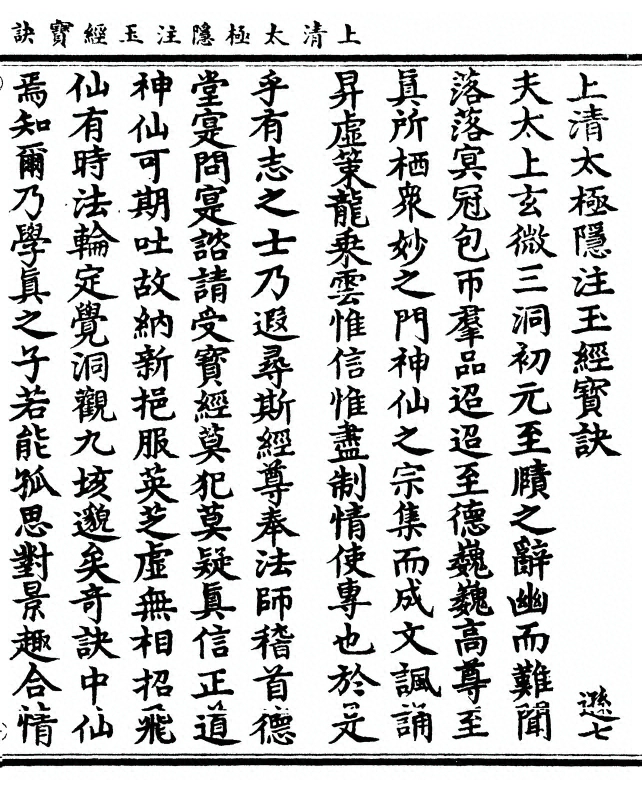 上清太極隱注玉經寶訣
上清太極隱注玉經寶訣
遜七
夫太上玄微三洞初元至賾之辭幽而難聞
落落冥冠包帀羣品迢迢至德巍巍高尊至
眞所栖衆妙之門神仙之宗集而成文諷誦
昇虛策龍乗雲惟信惟盡制情使專也於是
乎有志之士乃遐尋斯經尊奉法師稽首德
堂寔問寔諮請受寶經莫犯莫疑眞信正道
神仙可期吐故納新挹服英芝虛無相招飛
仙有時法輪定覺洞觀九垓邈矣奇訣中仙
焉知爾乃學眞之子若能孤思對景趣合情